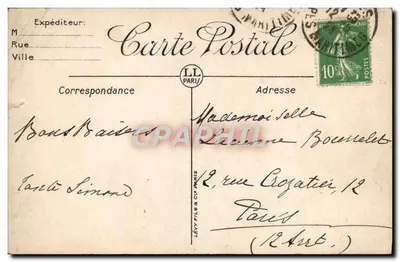 Expéditeur:
M
Rue
Ville
Carte Postale
LL
PARIS
Correspondance
Adresse
10c
POSTES
Bons Baisers
Tante Simone
Mademoiselle
Lucienne Bousselet
12, rue Crozatier, 12
Paris
(12 Arrt.)
CPAPHIL
LÉVY FILS & Cie PARIS